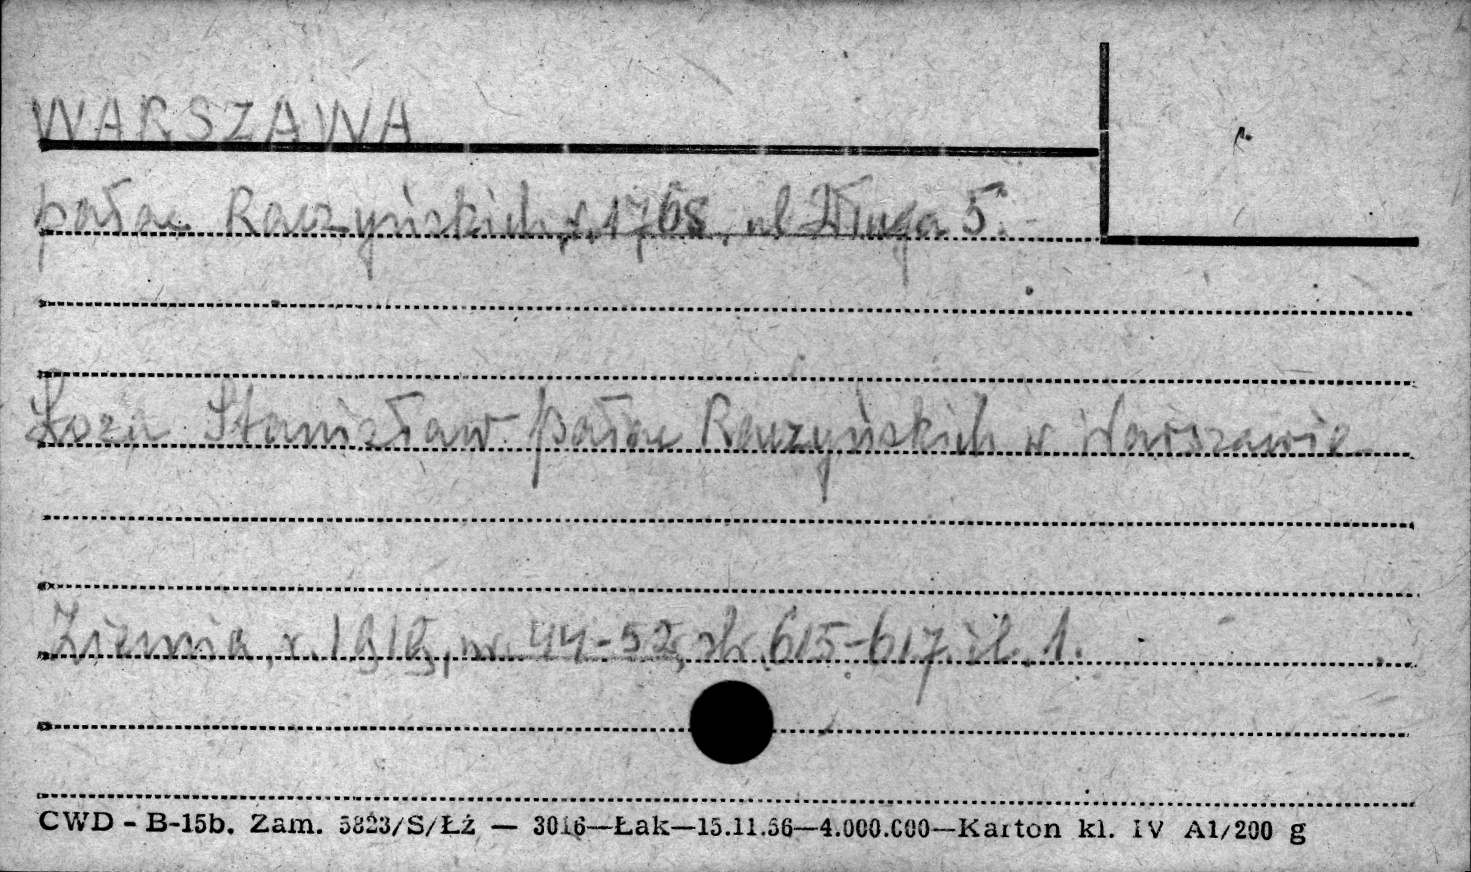 WARSZAWA
pałac Raczyńskich, r. 1768, ul Długa 5.
Łoza Stanisław. pałac Raczyńskich w Warszawie
Ziemia, r. 1919, nr. 44-52, str. 615-617. il. 1.
CWD - B-15b. Zam. 5823/S/Łż — 3016—Łak—15.11.56—4.000.000—Karton kl. IV A1/200 g